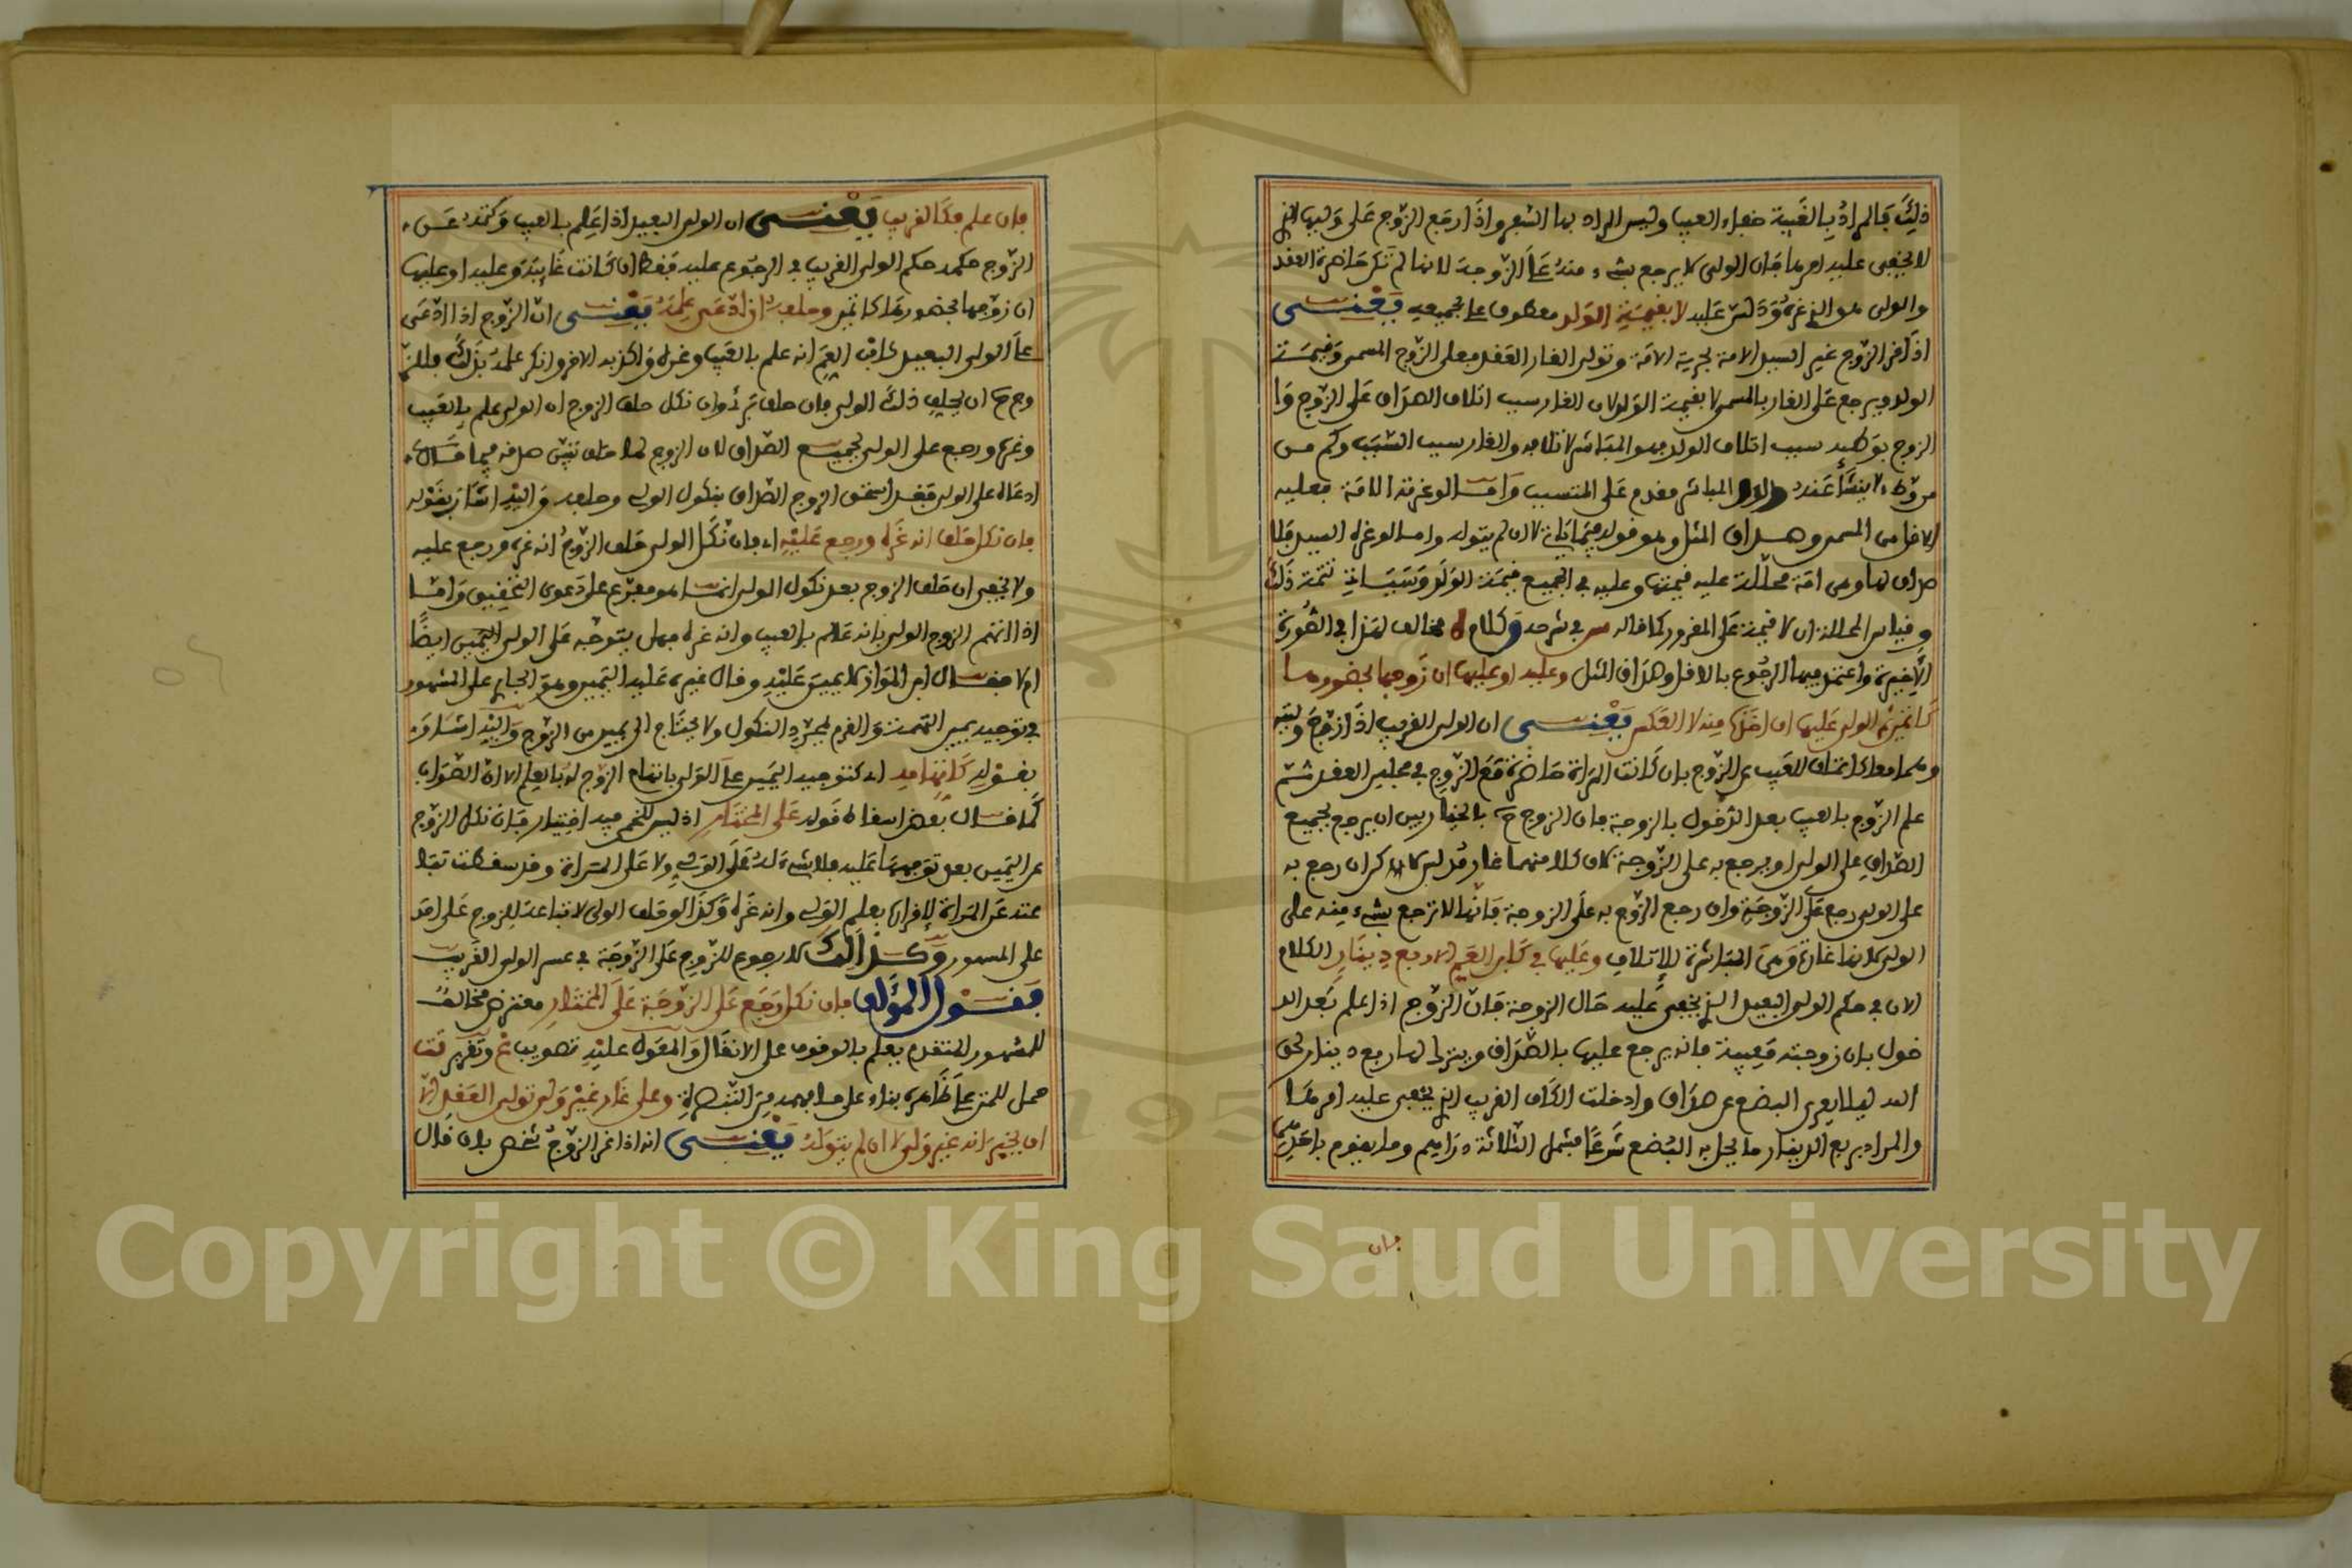 ذلك فالمراد بالغيبة خفاء العيب وليس المراد بها السفر واذا رجع الزوج على وليها الذي
لا يخفى عليه امرها فان الولي لا يرجع بشيء منه على الزوجة لانها لم تكن حاضرة العقد
والولي هو الذي غره ودلس عليه لا بقيمة الولد معطوف على بجميعه يعني
اذا غر الزوج غير السيد الامة بحرية الامة وتولى الغار العقد فعلى الزوج المسمى وقيمة
الولد ويرجع على الغار بالمسمى لا بقيمة الولد لان الغار سبب اتلاف الصداق على الزوج وا
الزوج بوطئه سبب اتلاف الولد فهو المباشر لاتلافه والغار سبب السبب وكم من
وطء لا ينشأ عنه والمباشر مقدم على المتسبب واما لو غرته الامة فعليه
الاقل من المسمى وصداق المثل وهو قوله فيما ياتي لا ان لم يتوله واما لو غره السيد فلا
صداق لها وهي امة محللة عليه قيمتها وعليه في الجميع قيمة الولد وسياتي تتمة ذلك
وقياس المحللة ان لا قيمة على المغرور كما قاله س في شرحه وكلام مخالف لهذا في الصورة
الاخيرة واعتمد فيها الرجوع بالاقل وصداق المثل وعليه او عليها ان زوجها بحضورها
كاتمين الولي عليها ان اخذها منه لا العكس يعني ان الولي القريب اذا زوج وليته
وهما معا كاتمان للعيب عن الزوج بان كانت المراة حاضرة مع الزوج في مجلس العقد ثم
علم الزوج بالعيب بعد الدخول بالزوجة فان الزوج بالخيار بين ان يرجع بجميع
الصداق على الولي او يرجع به على الزوجة لان كلا منهما غار مدلس لكن ان رجع به
على الولي رجع على الزوجة وان رجع الزوج به على الزوجة فانها لا ترجع بشيء منه على
الولي لانها غارة وهي المباشرة للاتلاف وعليها في كابن العم الا ربع دينار الكلام
الان في حكم الولي البعيد الذي يخفى عليه حال الزوجة فان الزوج اذا علم بعد الد
خول بان زوجته معيبة فانه يرجع عليها بالصداق ويترك لها ربع دينار لحق
الله ليلا يعرى البضع عن صداق وادخلت الكاف القريب الذي يخفى عليه امرها
والمراد بربع الدينار ما يحل به البضع شرعا فيشمل الثلاثة دراهم وما يقوم باحدهما
فان
فان علم فكالقريب يعني ان الولي البعيد اذا علم بالعيب وكتمه عن
الزوج حكمه حكم الولي القريب في الرجوع عليه فقط ان كانت غائبة وعليه او عليها
ان زوجها بحضورها كاتمين وحلفه ان ادعى علمه يعني ان الزوج اذا ادعى
على الولي البعيد كابن العم انه علم بالعيب وغره واكذبه الاخر وانكر علمه بذلك فللز
وج ان يحلف ذلك الولي فان حلف برئ وان نكل حلف الزوج ان الولي علم بالعيب
وغره ورجع على الولي بجميع الصداق لان الزوج لما حلف تبين صدقه فيما
ادعاه على الولي فقد استحق الزوج الصداق بنكول الولي وحلفه واليه اشار بقوله
فان نكل حلف انه غره ورجع عليه اي فان نكل الولي حلف الزوج انه غره ورجع عليه
ولا يخفى ان حلف الزوج بعد نكول الولي انما هو مفرع على دعوى التحقيق واما
اذا اتهم الزوج الولي بانه عالم بالعيب وانه غره فهل يتوجه على الولي اليمين ايضا
ام لا فقال ابن المواز لا يمين عليه وقال غيره عليه اليمين وهو الجاري على المشهور
في توجيه يمين التهمة والغرم بمجرد النكول ولا يحتاج الى يمين من الزوج واليه اشار
بقوله كاتهامه اي كتوجيه اليمين على الولي باتهام الزوج له بالعلم الا ان الصواب
كما قال بعض اسقاط قوله على المختار اذ ليس للخمي فيه اختيار فان نكل الزوج
عن اليمين بعد توجهها عليه فلا شيء له على الولي ولا على المراة وقد سقطت تبا
عته عن المراة لاقراره بعلم الولي وانه غره وكذا لو حلف الولي لا تباعة للزوج على احد
على المشهور وكذلك لا رجوع للزوج على الزوجة في عسر الولي القريب
فقول المؤلف فان نكل رجع على الزوجة على المختار معترض مخالف
للمشهور المتقدم يعلم بالوقوف على الانقال والمعول عليه تصويب غ وتقرير تت
حمل للمتن على ظاهره بناء على ما فهمه من التبصرة وعلى غار غير ولي تولى العقد الا
ان يخبر انه غير ولي لا ان لم يتوله يعني انه اذا غر الزوج شخص بان قال
Copyright © King Saud University
195